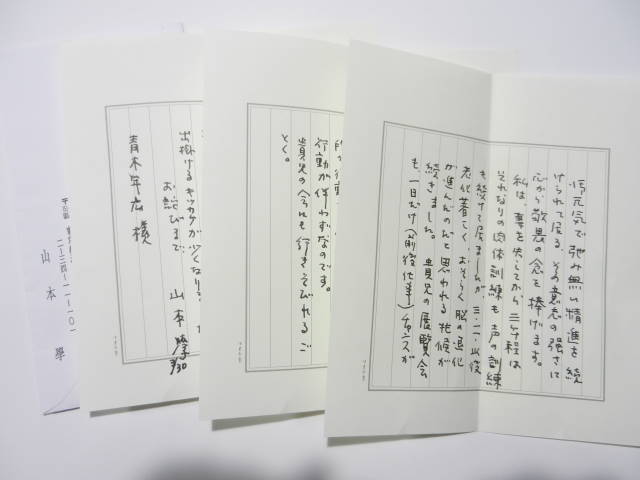 御元気で弛み無い精進を続
けられて居る、その意志の強さに
心から敬畏の念を捧げます。
私は、妻を失してから、三年程は
それなりの肉体訓練も声の訓練
も続けて居ましたが、三・一一以後
老化著しく、おそらく脳の退化
が進んだのだと思われる兆候が
続きました。貴兄の展覧会
も、一日だけ(前後仕事)チャンスが
行動が伴わずなのです。
貴兄の会にも行きそびれるご
とく。
出掛けるキッカケが少くなり
お詫びまで
山本學
3/30
青木年広様
二ー三四ー一一ー一〇一
山本學